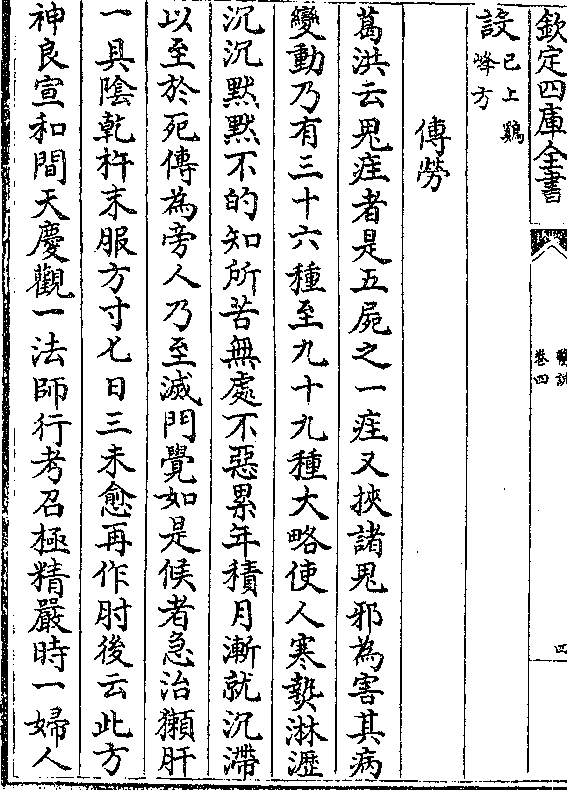 欽定四庫全書
醫說
卷四
四
設已上鷄
峰方
傳勞
葛洪云鬼疰者是五屍之一疰又挾諸鬼邪為害其病
變動乃有三十六種至九十九種大略使人寒熱淋瀝
沉沉默默不的知所苦無處不惡累年積月漸就沉滯
以至於死傳為旁人乃至滅門覺如是候者急治獺肝
一具陰乾杵末服方寸匕日三未愈再作肘後云此方
神良宣和間天慶觀一法師行考召極精嚴時一婦人